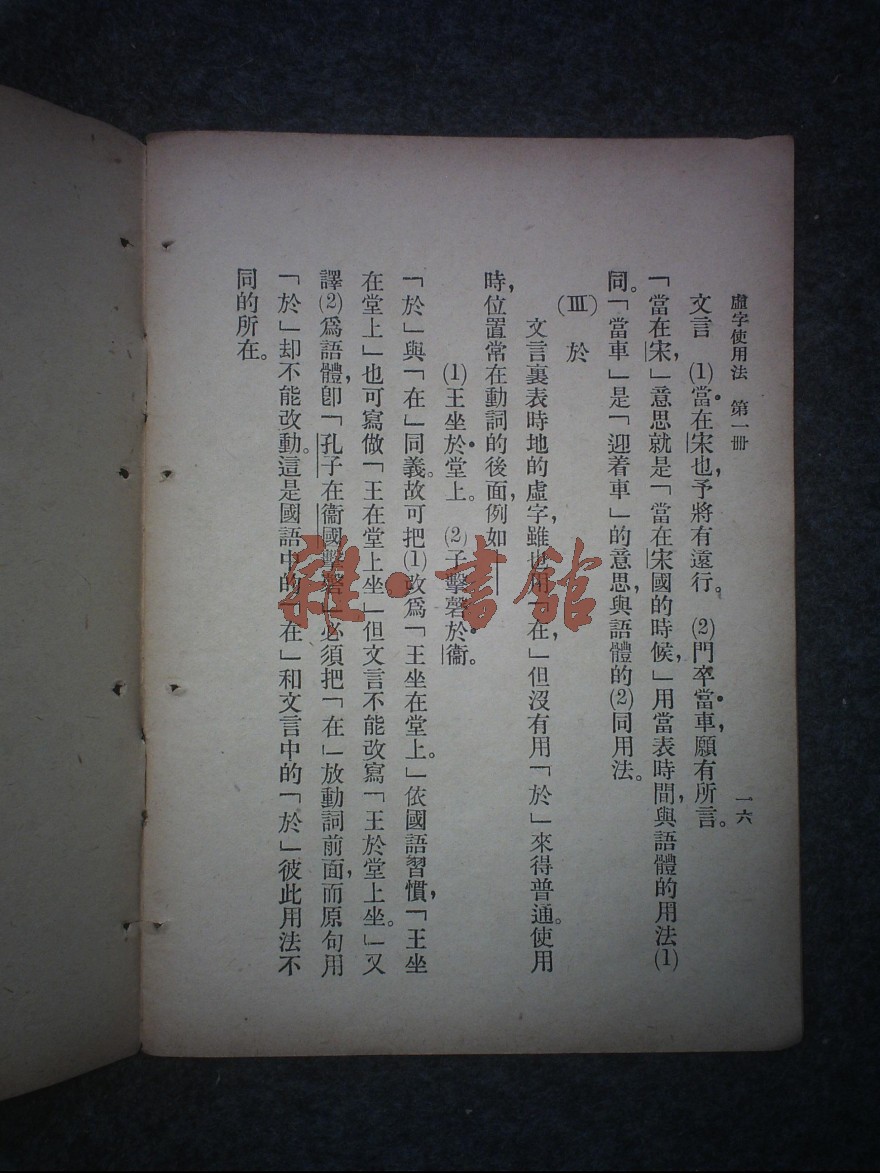 虛字使用法　第一冊
一六
文言　(1)當在宋也，予將有遠行。　(2)門卒當車，願有所言。
「當在宋，」意思就是「當在宋國的時候，」用當表時間，與語體的用法(1)
同。「當車」是「迎着車」的意思，與語體的(2)同用法。
(Ⅲ)　於
文言裏表時地的虛字，雖也用「在，」但沒有用「於」來得普通。使用
時，位置常在動詞的後面，例如
(1)王坐於堂上。　(2)子擊磬於衞。
「於」與「在」同義。故可把(1)改爲「王坐在堂上。」依國語習慣，「王坐
在堂上」也可寫做「王在堂上坐」但文言不能改寫「王於堂上坐。」又
譯(2)爲語體，卽「孔子在衞國擊磬」必須把「在」放動詞前面，而原句用
「於」却不能改動。這是國語中的「在」和文言中的「於」彼此用法不
同的所在。
雜·書館